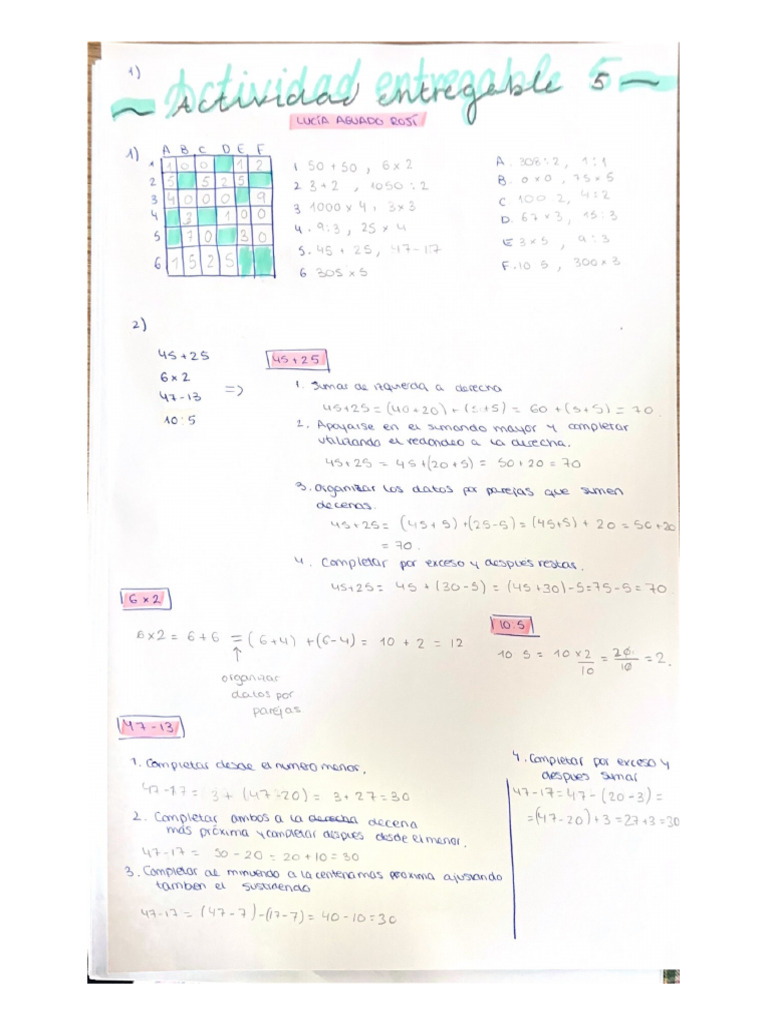 1)
Actividad entregable 5
~ Actividad entregable 5 ~
LUCÍA AGUADO ROSÍ
1)
A B C D E F
1 1 0 0 1 2
2 5 5 2 5
3 4 0 0 0 9
4 3 1 0 0
5 7 0 3 0
6 1 5 2 5
1 50 + 50 , 6 x 2
2 3 + 2 , 1050 : 2
3 1000 x 4 , 3 x 3
4. 9 : 3 , 25 x 4
5. 45 + 25, 47 - 17
6 305 x 5
A. 308 : 2 , 1 : 1
B. 0 x 0 , 75 x 5
C 100 . 2, 4 : 2
D. 67 x 3 , 15 : 3
E 3 x 5 , 9 : 3
F. 10 5 , 300 x 3
2)
45 + 25
6 x 2
47 - 13 =>
10 : 5
45 + 25
1. Sumar de izquierda a derecha
45+25 = (40+20) + (5+5) = 60 + (5+5) = 70.
2. Apoyarse en el sumando mayor y completar
utilizando el redondeo a la derecha.
45+25 = 45+(20+5) = 50+20 = 70
3. Organizar los datos por parejas que sumen
decenas.
45+25= (45+5)+(25-5) = (45+5) + 20 = 50+20
= 70.
4. Completar por exceso y despues restar.
45+25= 45 + (30-5) = (45+30)-5=75-5=70.
6 x 2
6x2 = 6+6 = (6+4) +(6-4) = 10 + 2 = 12
↑
organizar
datos por
parejas
10:5
10 5 = 10 x 2/10 = 20/10 = 2.
47-13
1. Completar desde el numero menor.
47-17= 3+ (47-20) = 3+27=30
2. Completar ambos a la derecha decena
más próxima y completar despues desde el menor.
47-17 = 50-20 = 20+10 = 30
3. Completar al minuendo a la centena mas proxima ajustando
tambien el sustraendo
47-17 = (47-7)-(17-7) = 40-10 = 30
4. Completar por exceso y
despues sumar
47-17=47-(20-3)=
=(47-20)+3=27+3=30